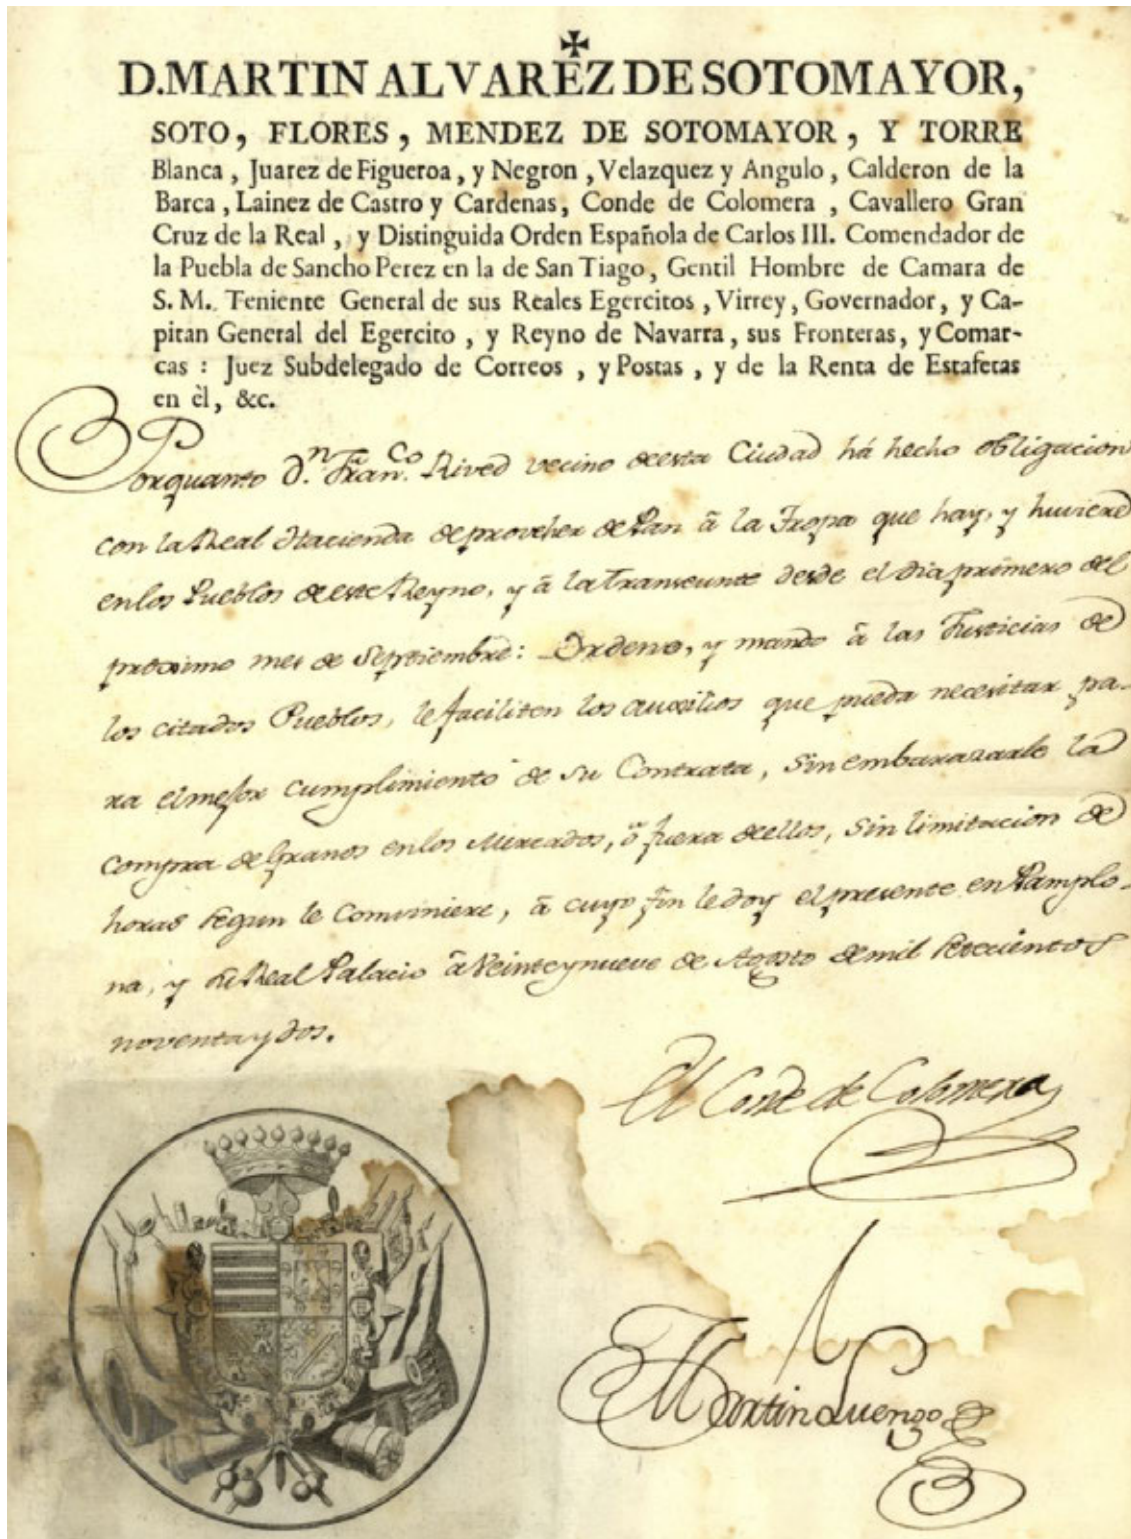 ✠
D. MARTIN ALVAREZ DE SOTOMAYOR,
SOTO, FLORES, MENDEZ DE SOTOMAYOR, Y TORRE
Blanca, Juarez de Figueroa, y Negron, Velazquez y Angulo, Calderon de la
Barca, Lainez de Castro y Cardenas, Conde de Colomera, Cavallero Gran
Cruz de la Real, y Distinguida Orden Española de Carlos III. Comendador de
la Puebla de Sancho Perez en la de San Tiago, Gentil Hombre de Camara de
S. M. Teniente General de sus Reales Egercitos, Virrey, Governador, y Ca-
pitan General del Egercito, y Reyno de Navarra, sus Fronteras, y Comar-
cas: Juez Subdelegado de Correos, y Postas, y de la Renta de Estafetas
en èl, &c.
Porquanto D.n Fran.co Rived vecino de esta Ciudad há hecho obligacion
con la Real Hacienda de proveher de Pan â la Tropa que hay, y huviere
en los Pueblos de este Reyno, y â la transeunte desde el dia primero del
proximo mes de Septiembre: Ordeno, y mando â las Justicias de
los citados Pueblos, le faciliten los auxilios que pueda necesitar pa-
ra el mejor cumplimiento de su Contrata, sin embarazarle la
compra de Granos en los Mercados, ô fuera de ellos, sin limitacion de
horas segun le conviniere, â cuyo fin le doy el presente en Pamplo-
na, y su Real Palacio â Veinte y nueve de Agosto de mil setecientos
noventa y dos.
El Conde de Colomera
Martin Luengo